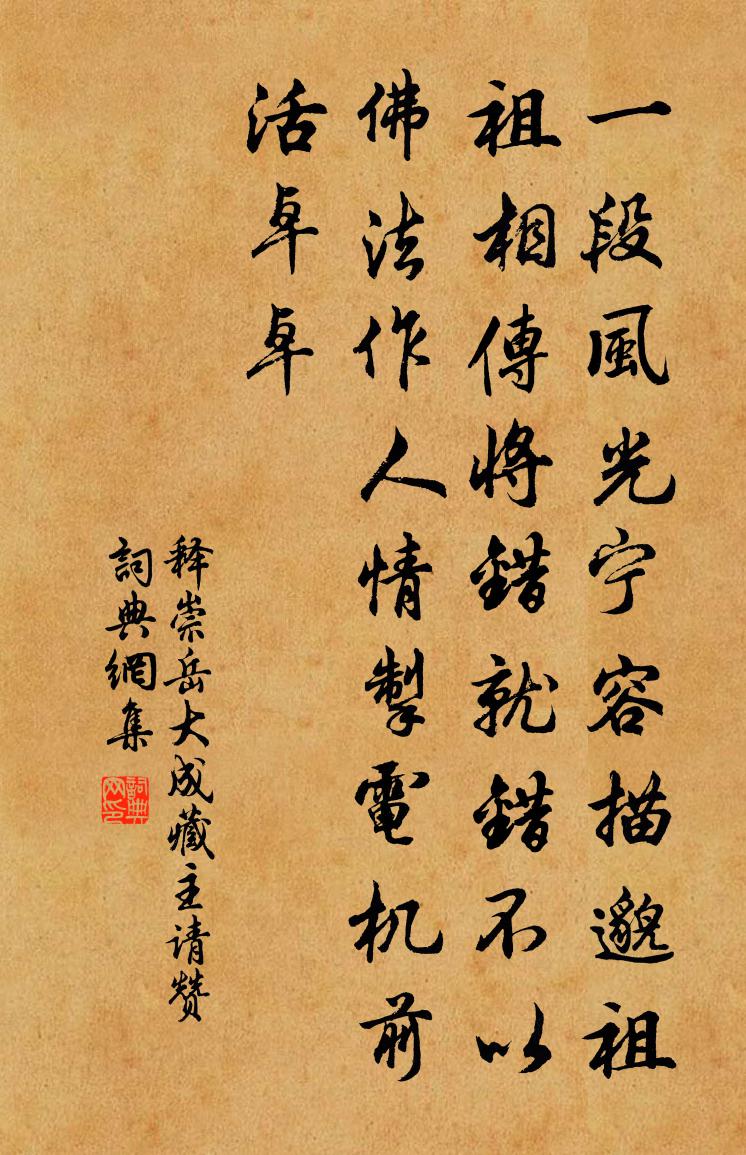 一段風光宁容描邈祖
祖相傳將錯就錯不以
佛法作人情掣電机前
活卓卓
释崇岳大成藏主请赞
詞典網集
詞典网印